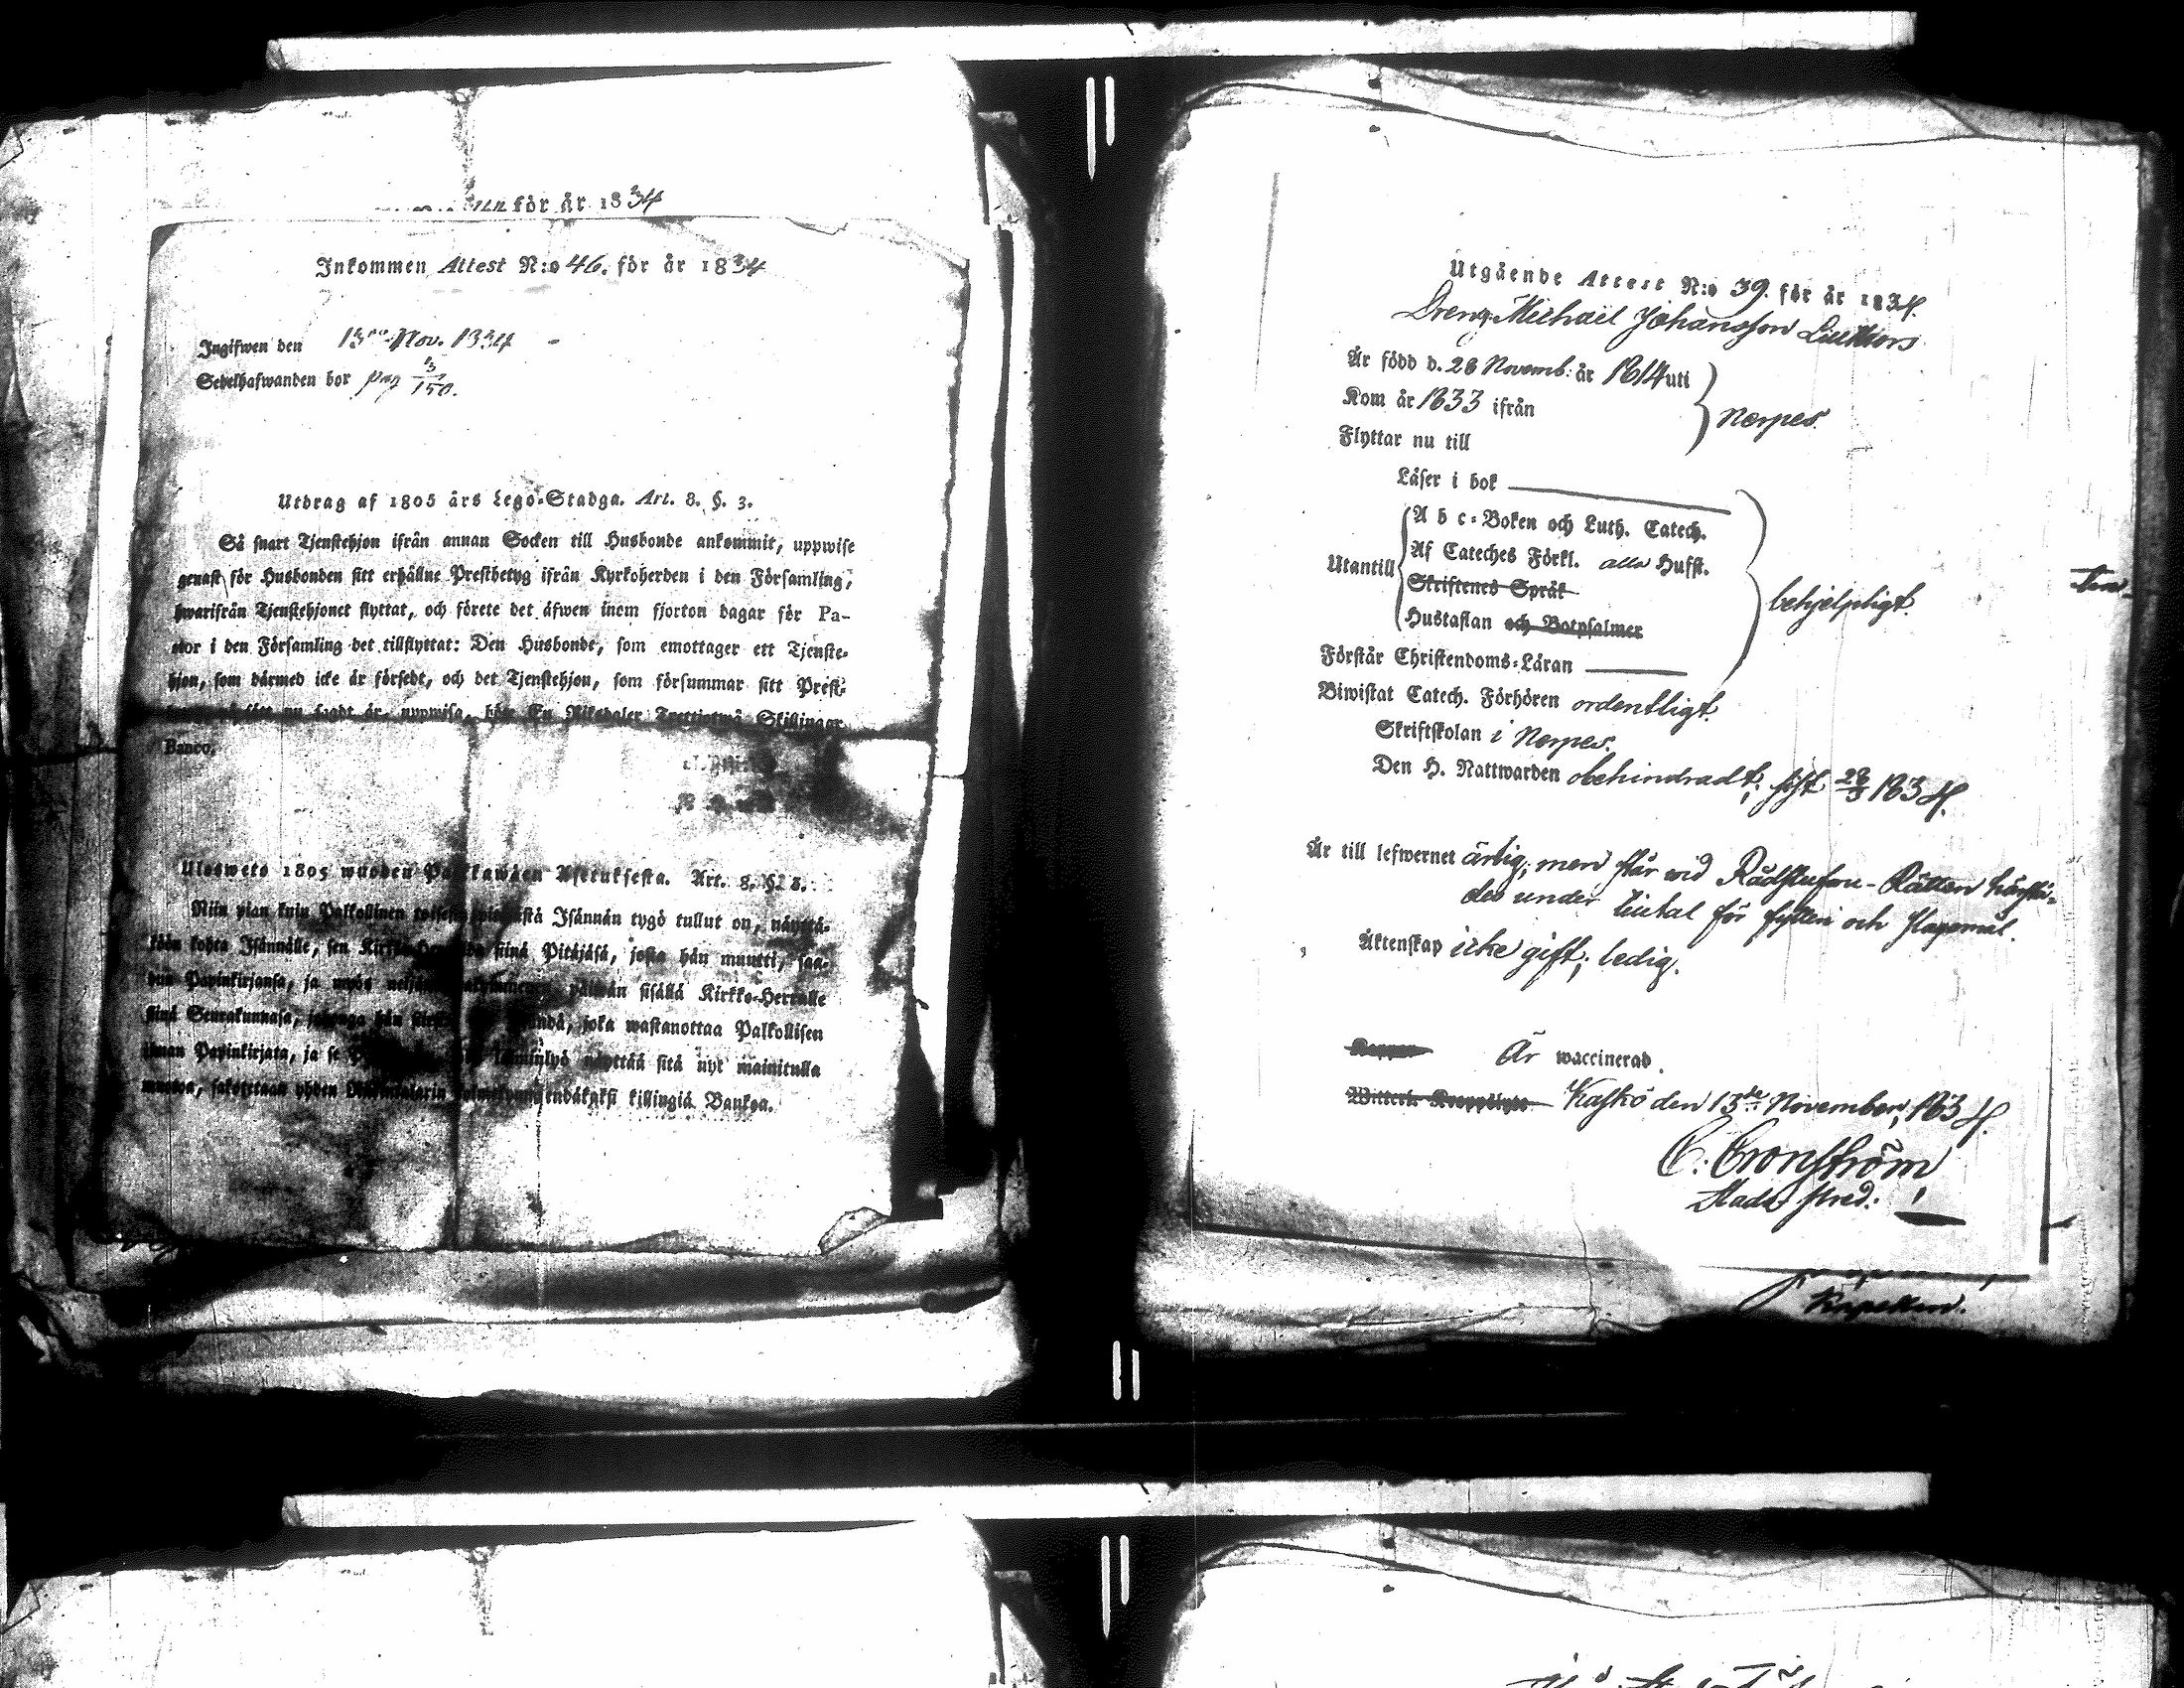 för år 1834
Inkommen Attest N:o 46. för år 1834
Ingifwen den 13 Nov. 1834
Sedelhafwanden bor pag 150.
Utdrag af 1805 års Lego-Stadga. Art. 8. §. 3.
Så snart Tjenstehjon ifrån annan Socken till Husbonde ankommit, uppwise
genast för Husbonden sitt erhållne Prestbetyg ifrån Kyrkoherden i den Församling,
hwarifrån Tjenstehjonet flyttat, och förete det äfwen inom fjorton dagar för Pa-
stor i den Församling det tillflyttat: Den Husbonde, som emottager ett Tjenste-
hjon, som därmed icke är försedt, och det Tjenstehjon, som försummar sitt Prest-
nu sagdt är, uppwisa, böte En Riksdaler Trettiotwå Skillingar
Banco.
Ulosweto 1805 wuoden Palkkawäen Asetuksesta. Art. 8. §. 3.
Niin pian kuin Palkollinen Isännän tygö tullut on, näyttä-
kään kohta Isännälle, sen Kirkko- siinä Pitäjäsä, josta hän muutti, saa-
dun Papinkirjansa, ja myös päiwän sisällä Kirkko-Herralle
siinä Seurakunnasa, joka wastanottaa Palkollisen
ilman Papinkirjata, ja se näyttää sitä nyt mainitulla
muotoa, sakotetaan yhden killingiä Bankoa.
Utgående Attest N:o 39. för år 1834.
Dreng Michael Johansson
Är född d. 28 Novemb: år 1814 uti
Kom år 1833 ifrån
Nerpes.
Flyttar nu till
Läser i bok
A b c-Boken och Luth. Catech.
Af Cateches Förkl. alla Husst.
Utantill
Skriftenes Språk
Hustaflan och Botpsalmer
behjelpligt.
Förstår Christendoms-Läran
Biwistat Catech. Förhören ordentligt.
Skriftskolan i Nerpes.
Den H. Nattwarden obehindradt; sist 28/9 1834.
Är till lefwernet ärlig; men står wid Rådstufwu-Rätten härstä-
des under tiltal för fylleri och slagsmål.
Äktenskap icke gift; ledig.
Koppor Är waccinerad.
Kaskö den 13de November, 1834.
C. Cronström
Stads Pred:
Kapellan.